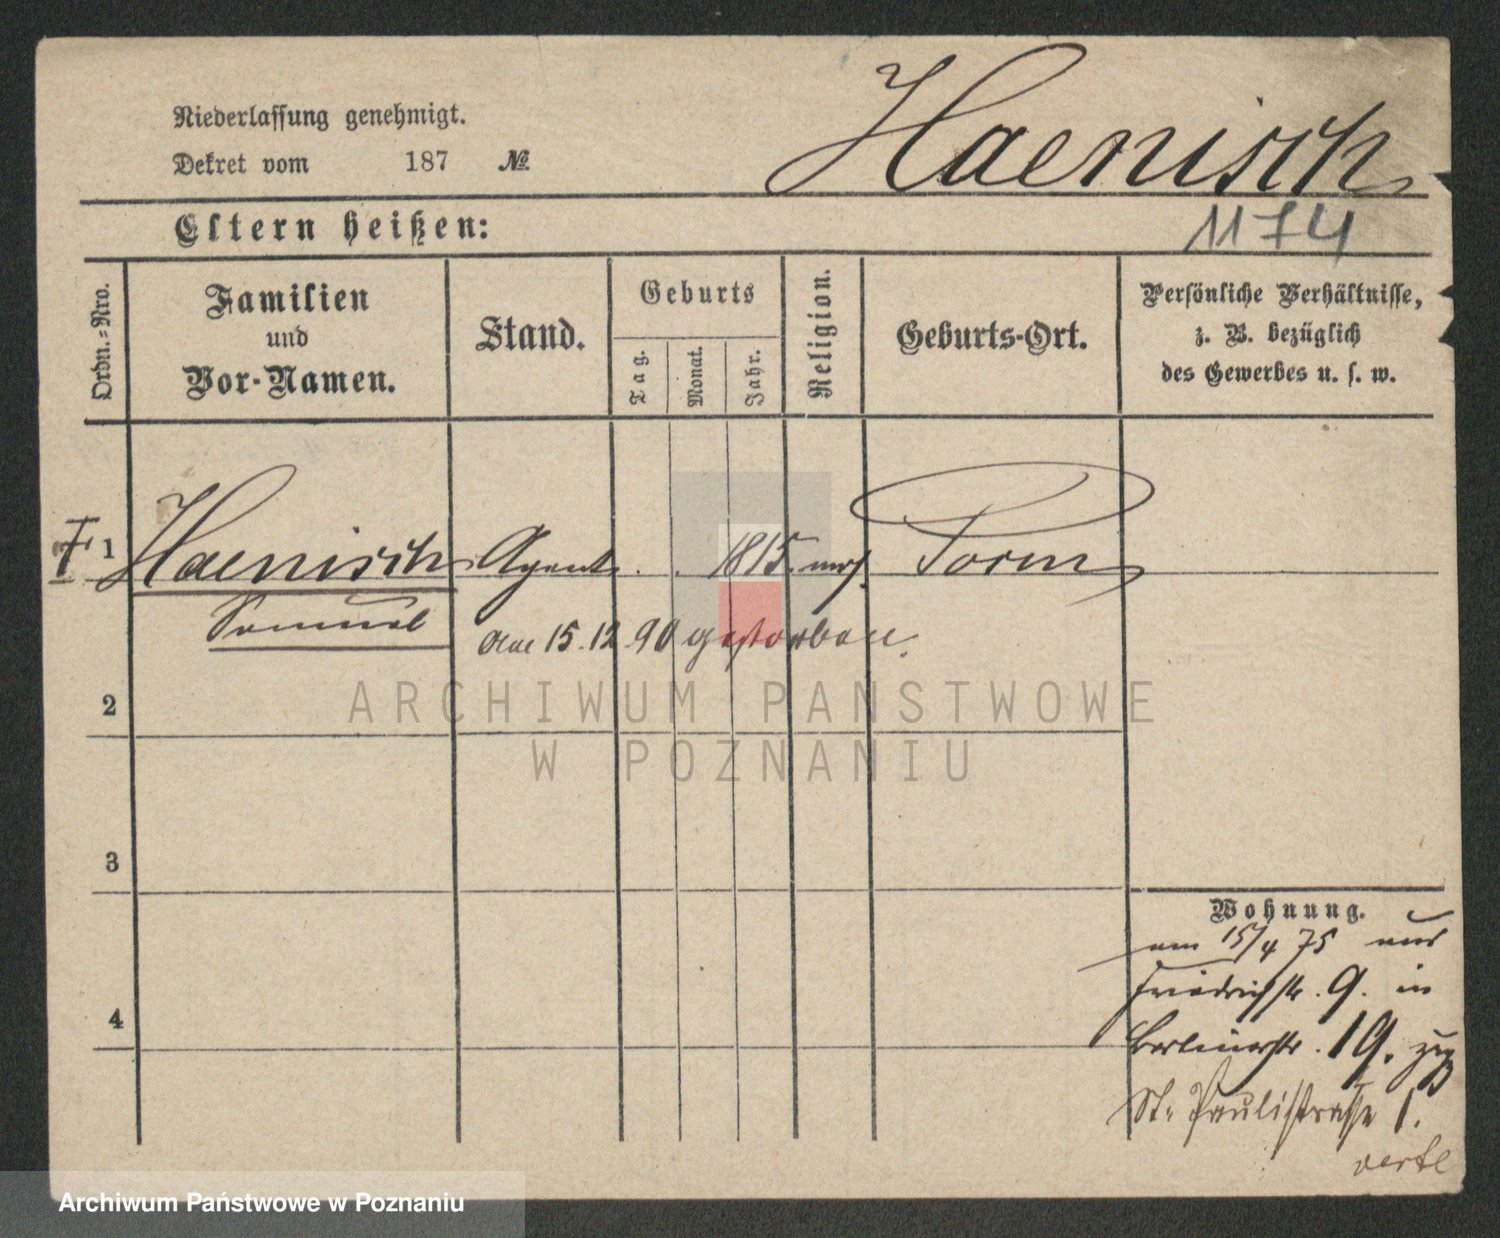 Haenisch
Niederlassung genehmigt.
Dekret vom 187 №
1174
Eltern heißen:
Ordn.-Nro.
Familien
und
Vor-Namen.
Stand.
Geburts
Tag.
Monat.
Jahr.
Religion.
Geburts-Ort.
Persönliche Verhältnisse,
z. B. bezüglich
des Gewerbes u. s. w.
1 Haenisch Agent . . 1815. mos. Posen
Samuel
am 15.12.90 gestorben.
2
ARCHIWUM PAŃSTWOWE
W POZNANIU
3
4
Wohnung.
am 15/4 75 aus
Friedrichstr. 9. in
Berlinerstr. 19.
St. Paulistrasse 1.
verte
Archiwum Państwowe w Poznaniu